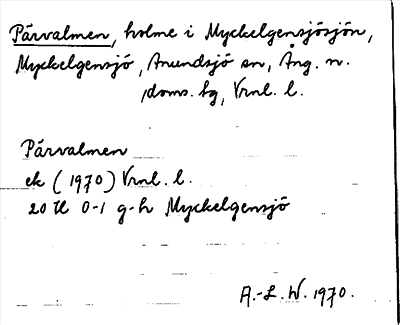 Pärvalmen, holme i Myckelgensjösjön,
Myckelgensjö, Anundsjö sn, Ång. n.
doms. bg, Vrnl. l.
Pärvalmen
ek (1970) Vrnl. l.
20 H 0-1 g-h Myckelgensjö
A.-L. W. 1970.